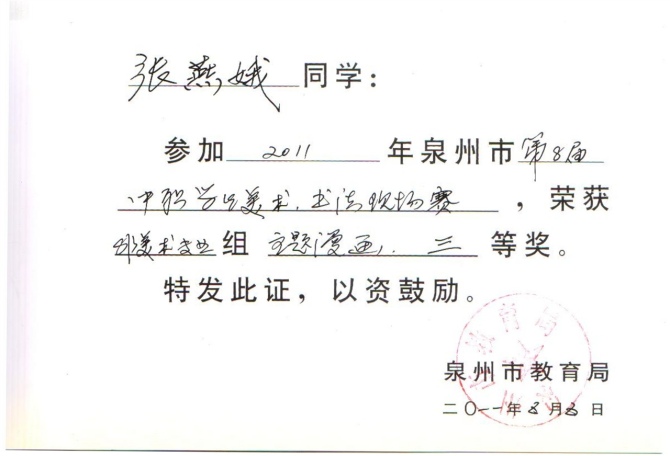 张燕娥同学：
参加 2011 年泉州市第8届
中职学生美术、书法现场赛，荣获
非美术专业组 主题漫画 三 等奖。
特发此证，以资鼓励。
泉州市教育局
二〇一一年8月8日